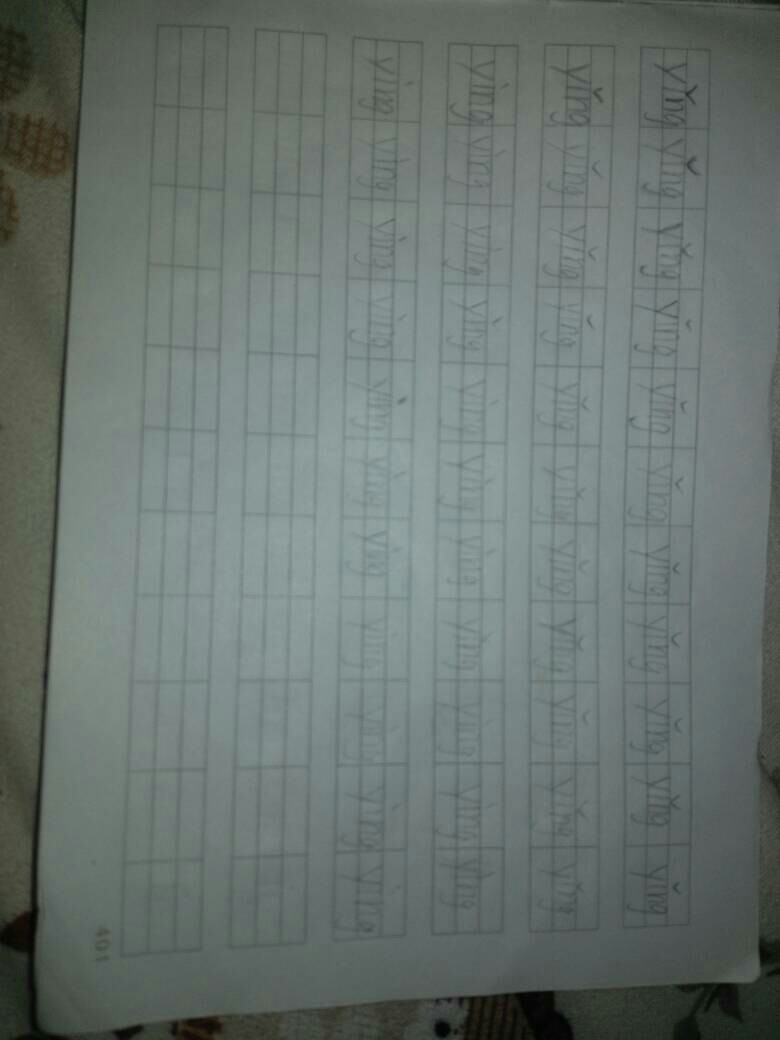 yǐng yǐng yǐng yǐng yǐng yǐng yǐng yǐng yǐng yǐng yǐng
yǐng yǐng yǐng yǐng yǐng yǐng yǐng yǐng yǐng yǐng yǐng
yìng yìng yìng yìng yìng yìng yìng yìng yìng yìng yìng
yìng yìng yìng yìng yìng yìng yìng yìng yìng yìng yìng